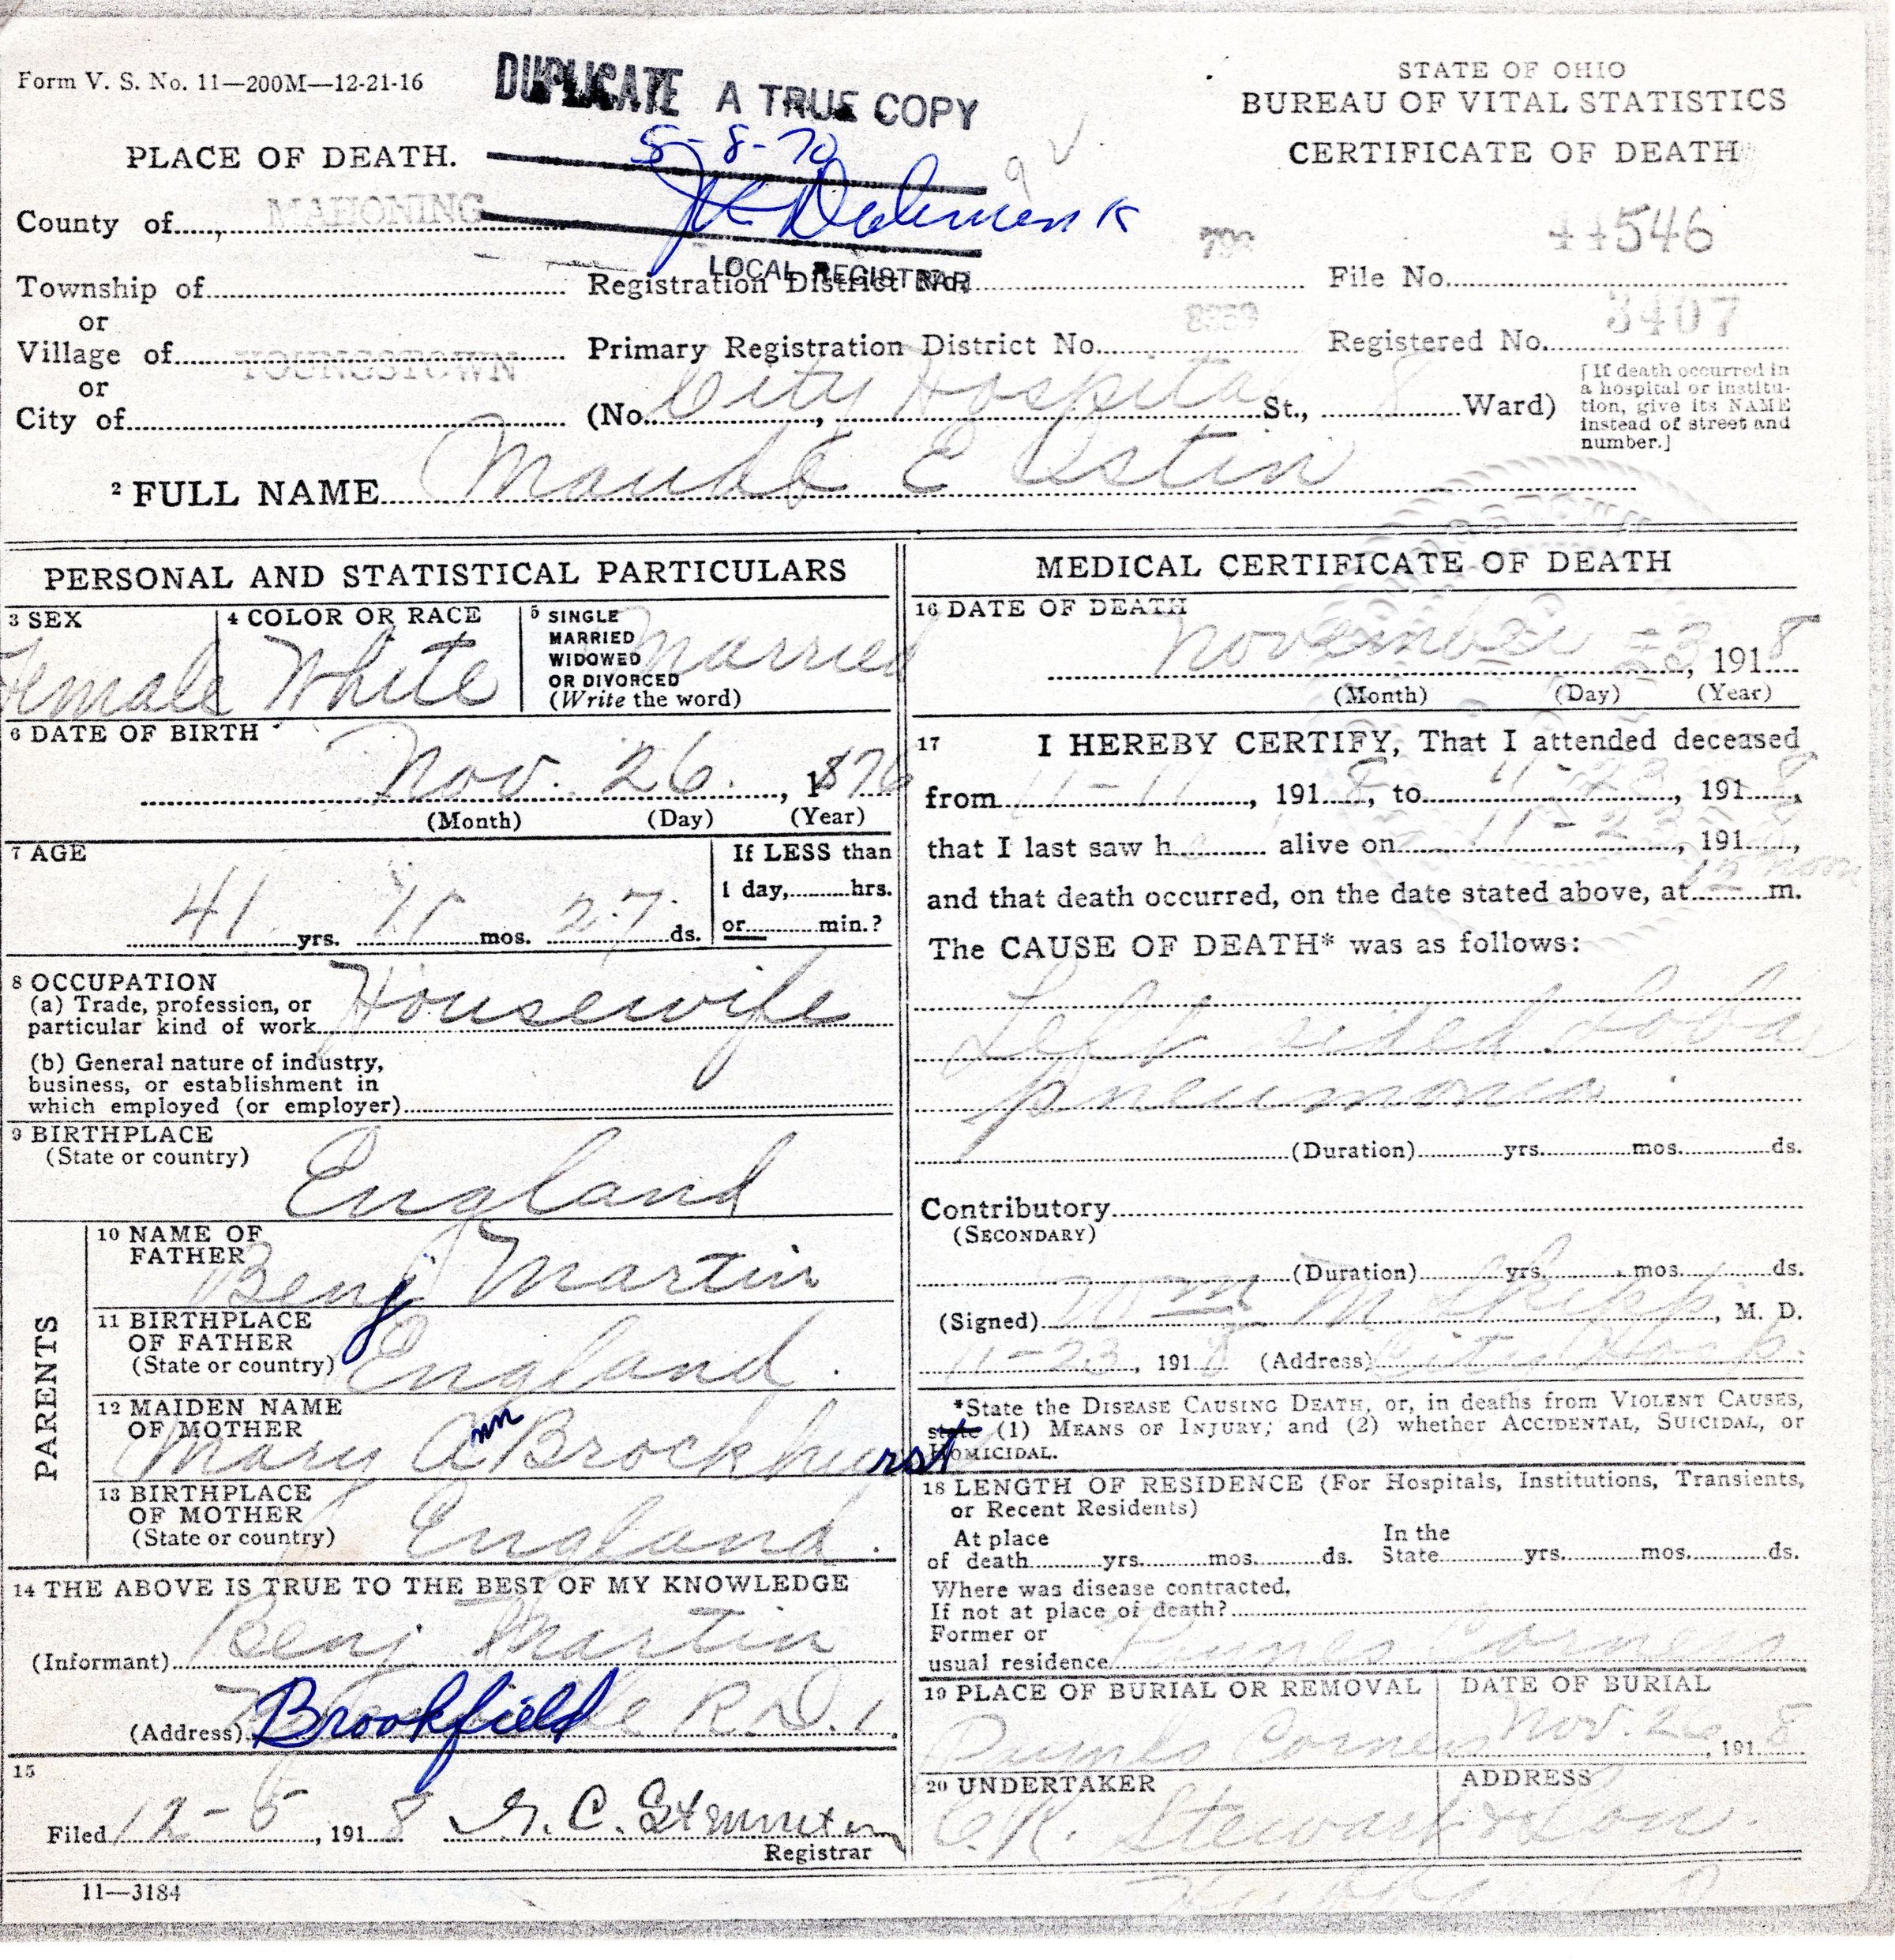 Form V. S. No. 11—200M—12-21-16
DUPLICATE A TRUE COPY
5-8-70
LOCAL REGISTRAR
STATE OF OHIO
BUREAU OF VITAL STATISTICS
CERTIFICATE OF DEATH
PLACE OF DEATH.
County of MAHONING
Township of
or
Village of
or
City of YOUNGSTOWN
Registration District No.
File No. 44546
Primary Registration District No.
Registered No. 3407
(No. City Hospital St., 8 Ward)
[If death occurred in
a hospital or institu-
tion, give its NAME
instead of street and
number.]
2 FULL NAME Maude E Ostin
PERSONAL AND STATISTICAL PARTICULARS
3 SEX
Female
4 COLOR OR RACE
White
5 SINGLE
MARRIED
WIDOWED
OR DIVORCED
(Write the word)
Married
6 DATE OF BIRTH
Nov. 26. , 1876
(Month) (Day) (Year)
7 AGE
41 yrs. 11 mos. 27 ds.
If LESS than
1 day, hrs.
or min.?
8 OCCUPATION
(a) Trade, profession, or
particular kind of work Housewife
(b) General nature of industry,
business, or establishment in
which employed (or employer)
9 BIRTHPLACE
(State or country)
England
PARENTS
10 NAME OF
FATHER
Benj Martin
11 BIRTHPLACE
OF FATHER
(State or country) England.
12 MAIDEN NAME
OF MOTHER
Mary Ann Brockhurst
13 BIRTHPLACE
OF MOTHER
(State or country) England.
14 THE ABOVE IS TRUE TO THE BEST OF MY KNOWLEDGE
(Informant) Benj Martin
(Address) Brookfield R.D.1
15
Filed 12-5, 1918
Registrar
11—3184
MEDICAL CERTIFICATE OF DEATH
16 DATE OF DEATH
November 23, 1918
(Month) (Day) (Year)
17 I HEREBY CERTIFY, That I attended deceased
from 11-11, 1918, to 11-23, 1918,
that I last saw h alive on 11-23, 1918,
and that death occurred, on the date stated above, at 12 noon m.
The CAUSE OF DEATH* was as follows:
Left sided Lobar
pneumonia
(Duration) yrs. mos. ds.
Contributory
(SECONDARY)
(Duration) yrs. mos. ds.
(Signed) Wm M. Skipp, M. D.
11-23, 1918 (Address) City Hosp.
*State the DISEASE CAUSING DEATH, or, in deaths from VIOLENT CAUSES,
state (1) MEANS OF INJURY; and (2) whether ACCIDENTAL, SUICIDAL, or
HOMICIDAL.
18 LENGTH OF RESIDENCE (For Hospitals, Institutions, Transients,
or Recent Residents)
At place
of death yrs. mos. ds.
In the
State yrs. mos. ds.
Where was disease contracted,
If not at place of death?
Former or
usual residence Corners
19 PLACE OF BURIAL OR REMOVAL
Corners
DATE OF BURIAL
Nov. 26, 1918
20 UNDERTAKER
Stewart & Son.
ADDRESS